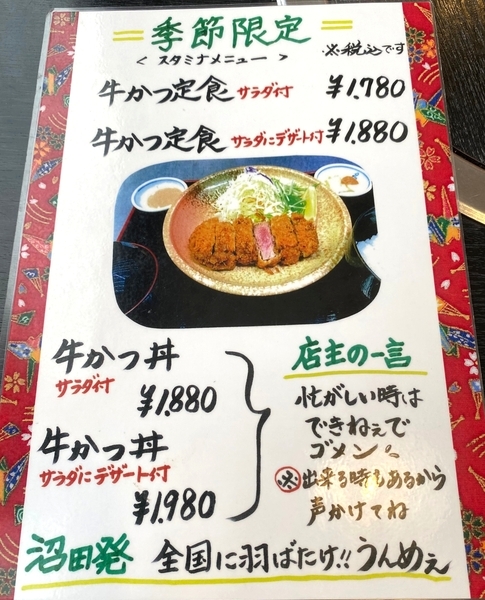 季節限定
< スタミナメニュー >
※税込です
牛かつ定食 サラダ付 ¥1,780
牛かつ定食 サラダにデザート付 ¥1,880
牛かつ丼
サラダ付
¥1,880
牛かつ丼
サラダにデザート付
¥1,980
店主の一言
忙がしい時は
できねぇで
ゴメン。
※出来る時もあるから
声かけてね
沼田発 全国に羽ばたけ!! うんめぇ